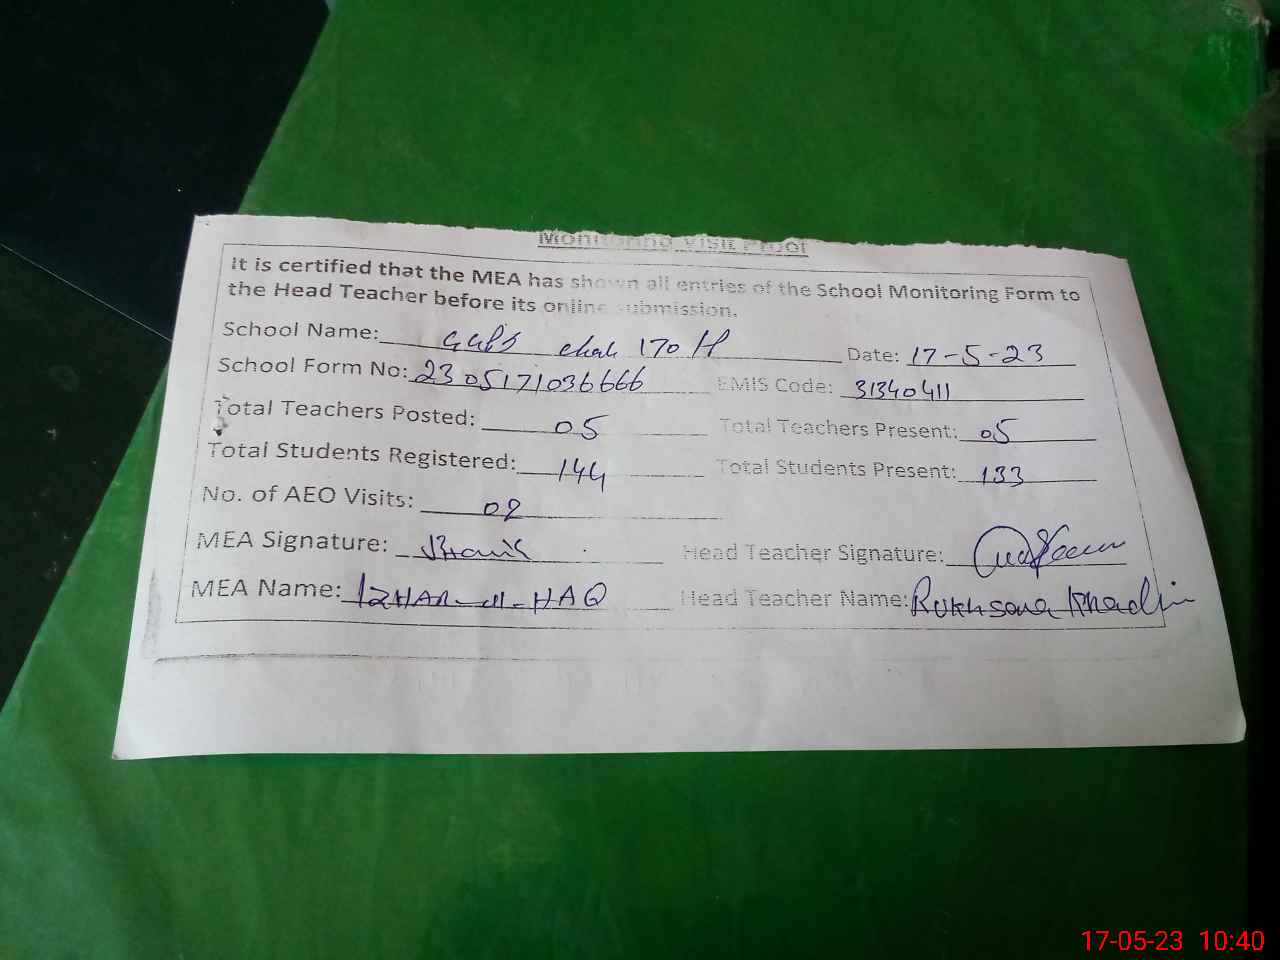 Monitoring Visit Proof
It is certified that the MEA has shown all entries of the School Monitoring Form to
the Head Teacher before its online submission.
School Name: GGPS Chak 170 H Date: 17-5-23
School Form No: 2305171036666 EMIS Code: 31340411
Total Teachers Posted: 05 Total Teachers Present: 05
Total Students Registered: 144 Total Students Present: 133
No. of AEO Visits: 02
MEA Signature: Head Teacher Signature:
MEA Name: IZHAR-ul-HAQ Head Teacher Name: Rukhsana
17-05-23 10:40